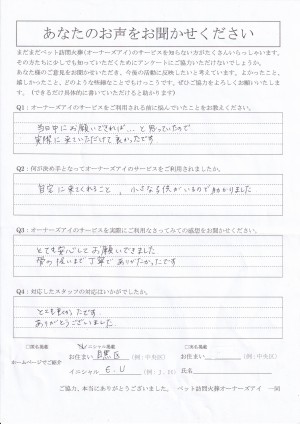 あなたのお声をお聞かせください
まだまだペット訪問火葬(オーナーズアイ)のサービスを知らない方がたくさんいらっしゃいます。
その方たちに少しでも知っていただくためにアンケートにご協力いただけないでしょうか。
あなた様のご意見をお聞かせいただき、今後の活動に反映したいと考えています。よかったこと、
嬉しかったこと、どのような些細なことでもけっこうです。ぜひご協力をよろしくお願いいたします。(できるだけ具体的に書いていただけると助かります)
Q1：オーナーズアイのサービスをご利用される前に悩んでいたことをお教えください。
当日中にお願いできれば…と思っていたので
実際に来ていただけて良かったです
Q2：何が決め手となってオーナーズアイのサービスをご利用されましたか。
自宅に来てくれること、小さな子供がいるので助かりました
Q3：オーナーズアイのサービスを実際にご利用なさってみての感想をお聞かせください。
とても安心してお願いできました
骨の扱いまで丁寧でありがたかったです
Q4：対応したスタッフの対応はいかがでしたか。
とても良かったです
ありがとうございました
ホームページでご紹介
□実名掲載
イニシャル掲載
お住まい 目黒区 (例：中央区)
イニシャル E.U (例：J.H)
お住まい (例：中央区)
氏名
ご協力、本当にありがとうございました。 ペット訪問火葬オーナーズアイ 一同